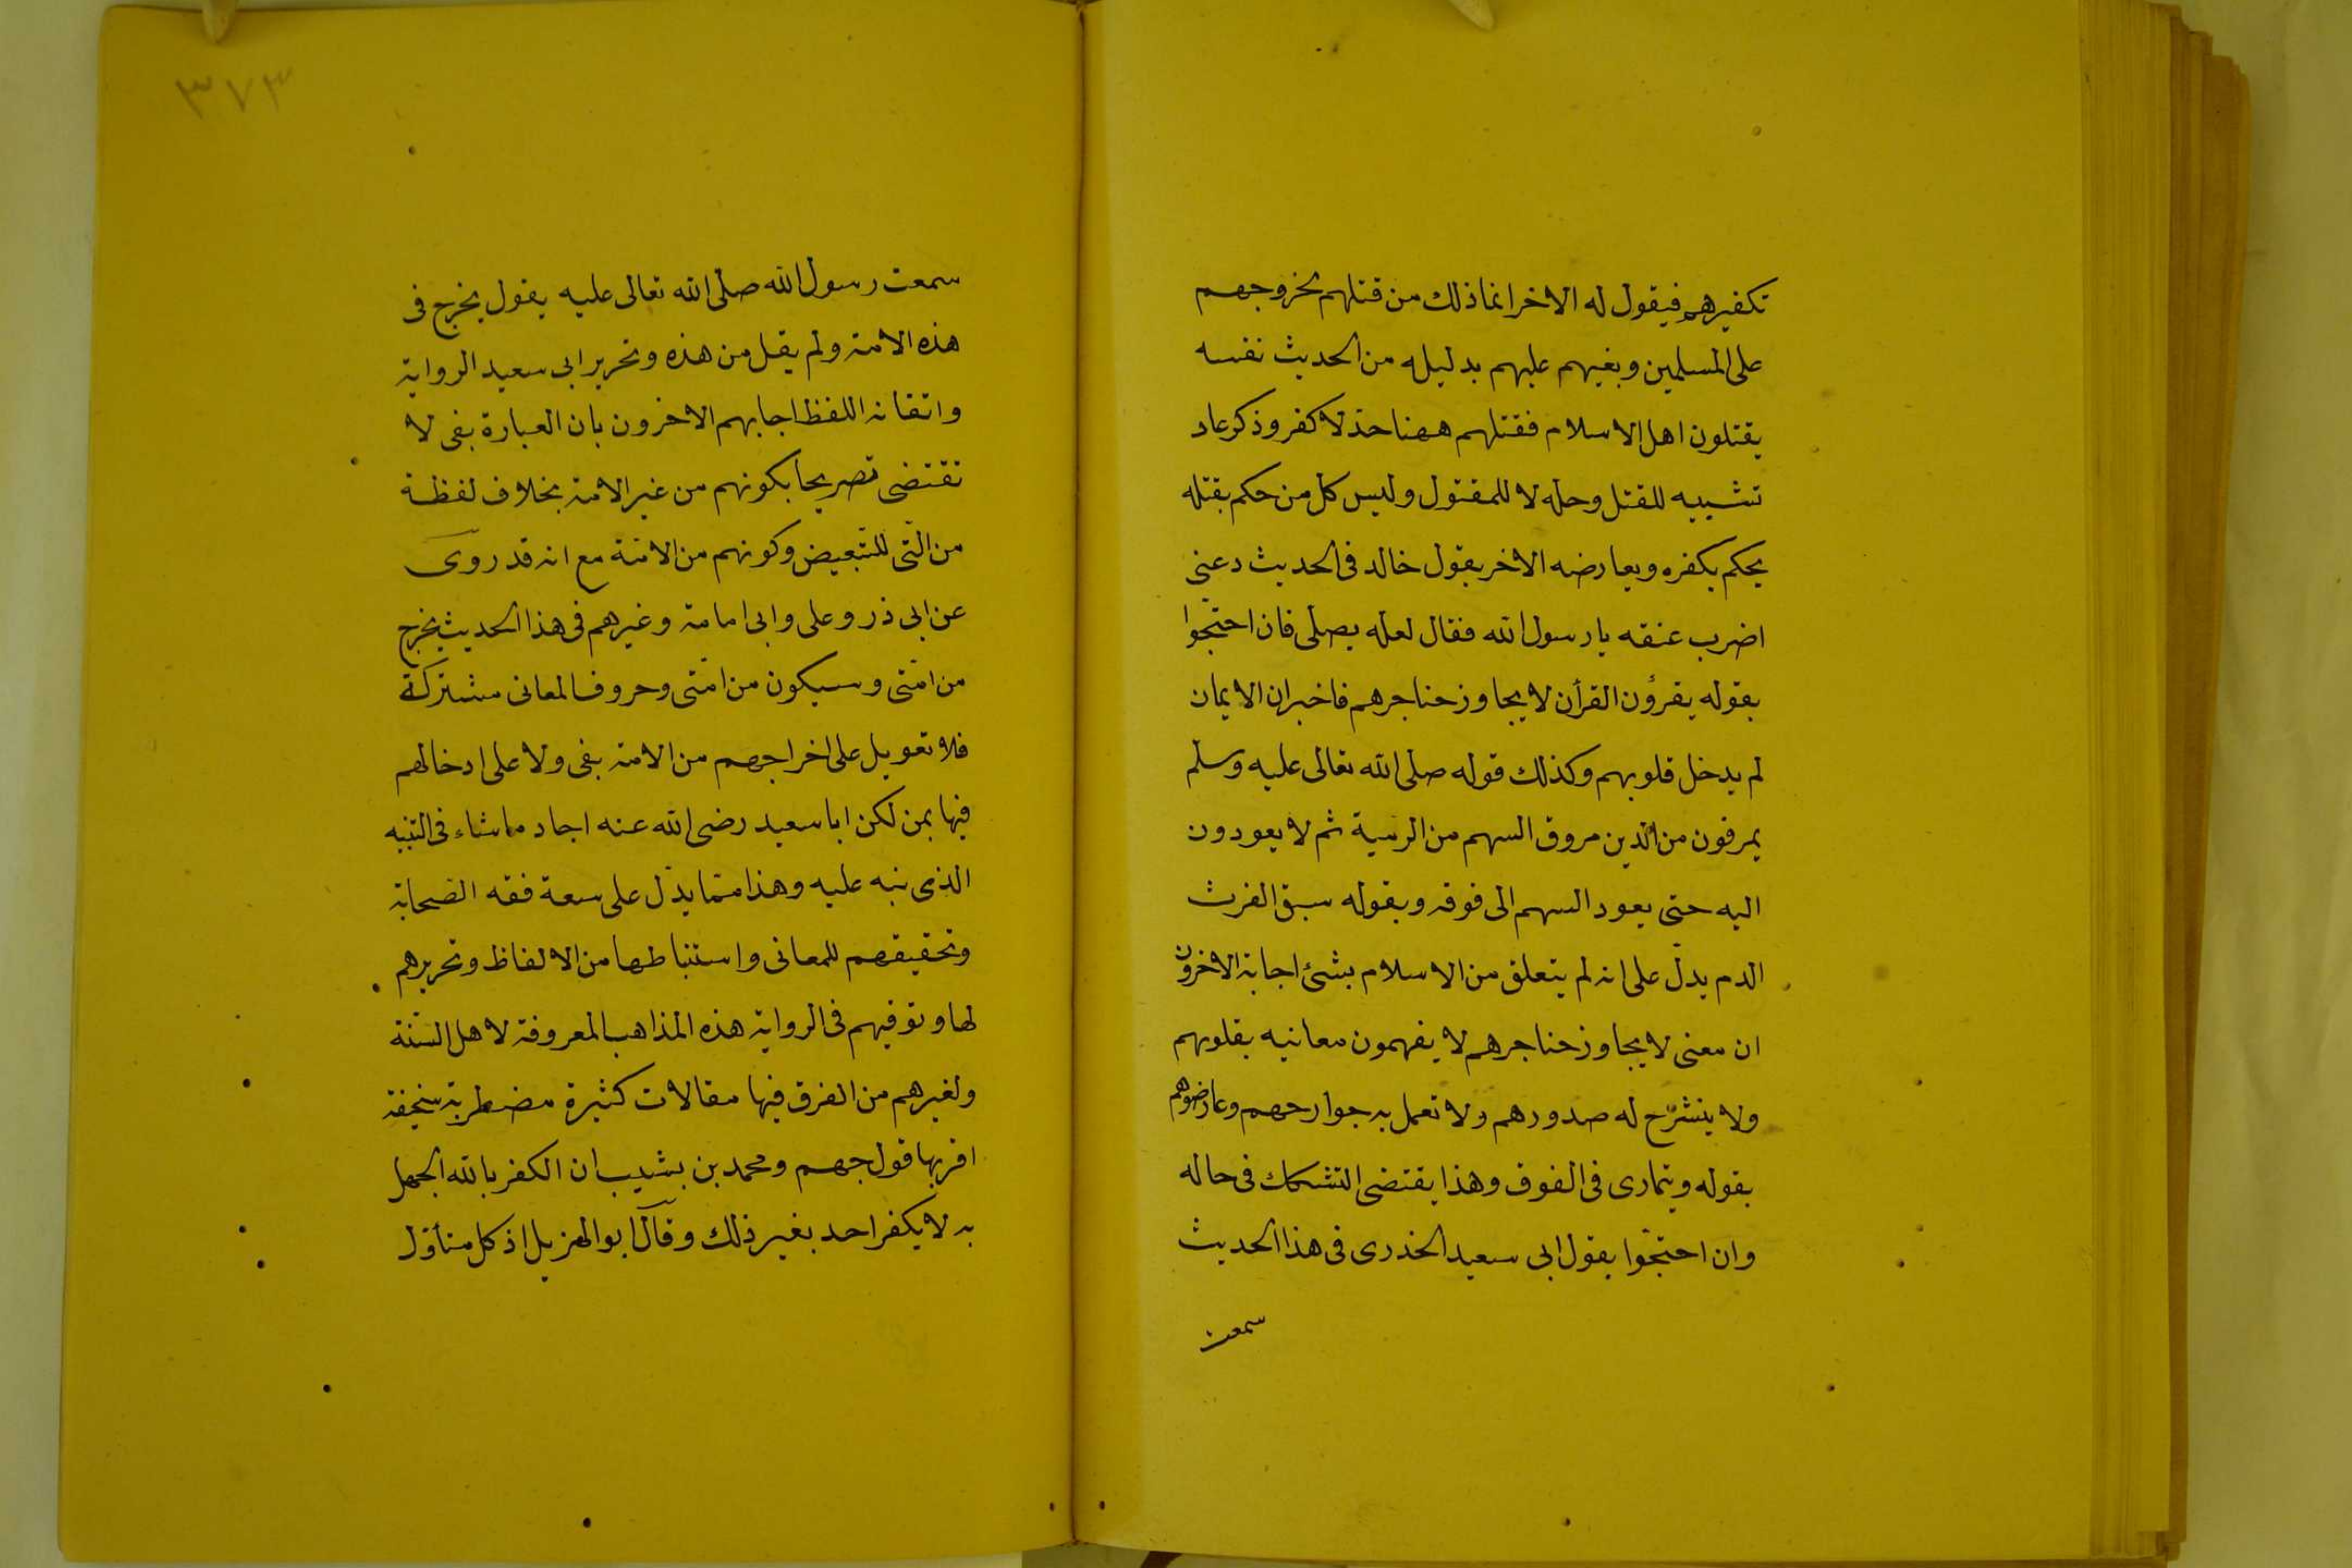 تكفيرهم فيقول له الاخر انما ذلك من قتلهم لخروجهم
على المسلمين وبغيهم عليهم بدليله من الحديث نفسه
يقتلون اهل الاسلام فقتلهم ههنا حد لا كفر وذكر عاد
تشبيه للقتل وحله لا للمقتول وليس كل من حكم بقتله
يحكم بكفره ويعارضه الاخر بقول خالد فى الحديث دعنى
اضرب عنقه يا رسول الله فقال لعله يصلى فان احتجوا
بقوله يقرؤن القرأن لا يجاوز حناجرهم فاخبر ان الايمان
لم يدخل قلوبهم وكذلك قوله صلى الله تعالى عليه وسلم
يمرقون من الدين مروق السهم من الرمية ثم لا يعودون
اليه حتى يعود السهم الى فوقه وبقوله سبق الفرث
الدم يدل على انه لم يتعلق من الاسلام بشئ اجابه الاخرون
ان معنى لا يجاوز حناجرهم لا يفهمون معانيه بقلوبهم
ولا ينشرح له صدورهم ولا تعمل به جوارحهم وعارضوهم
بقوله ويتمارى فى الفوق وهذا يقتضى التشكك فى حاله
وان احتجوا بقول ابى سعيد الخدرى فى هذا الحديث
سمعت
٣٧٣
سمعت رسول الله صلى الله تعالى عليه يقول يخرج فى
هذه الامة ولم يقل من هذه وتحرير ابى سعيد الرواية
واتقانه اللفظ اجابهم الاخرون بان العبارة بفى لا
تقتضى تصريحا بكونهم من غير الامة بخلاف لفظة
من التى للتبعيض وكونهم من الامة مع انه قد روى
عن ابى ذر وعلى وابى امامة وغيرهم فى هذا الحديث يخرج
من امتى وسيكون من امتى وحروف المعانى مشتركة
فلا تعويل على اخراجهم من الامة بفى ولا على ادخالهم
فيها بمن لكن ابا سعيد رضى الله عنه اجاد ما شاء فى التنبيه
الذى نبه عليه وهذا مما يدل على سعة فقه الصحابة
وتحقيقهم للمعانى واستنباطها من الالفاظ وتحريرهم
لها وتوقيهم فى الرواية هذه المذاهب المعروفة لاهل السنة
ولغيرهم من الفرق فيها مقالات كثيرة مضطربة سخيفة
اقربها قول جهم ومحمد بن بشيب ان الكفر بالله الجهل
به لا يكفر احد بغير ذلك وقال ابو الهزيل اذ كل متأول